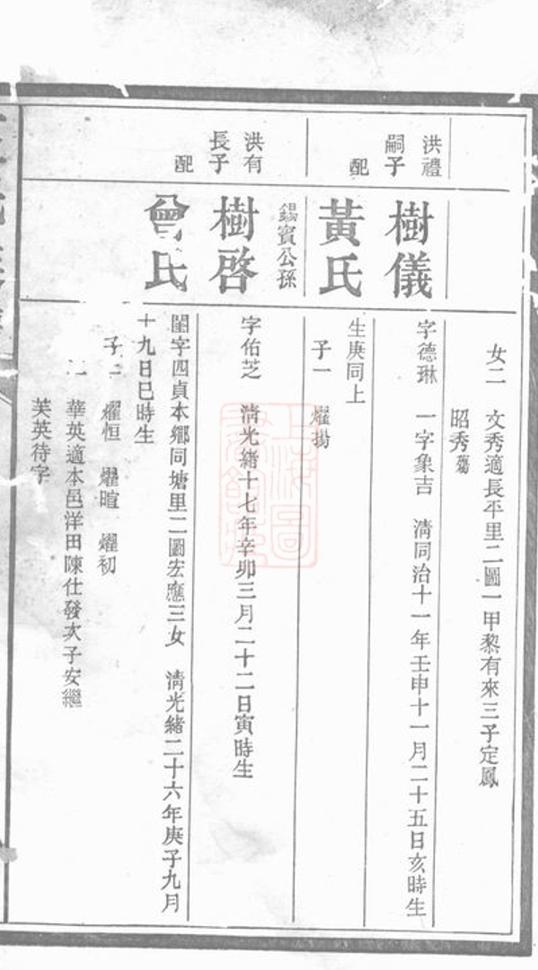 女二　文秀適長平里二圖一甲黎有來三子定鳳
昭秀殤
洪禮
嗣子
樹儀
字德琳　一字象吉　清同治十一年壬申十一月二十五日亥時生
配
黃氏
生庚同上
子一　燿揚
錫賓公孫
洪有
長子
樹啓
字佑芝　清光緒十七年辛卯三月二十二日寅時生
配
曾氏
閨字四貞本鄉同塘里二圖宏應三女　清光緒二十六年庚子九月
十九日巳時生
子三　燿恒　燿暄　燿初
華英適本邑洋田陳仕發次子安繼
芙英待字